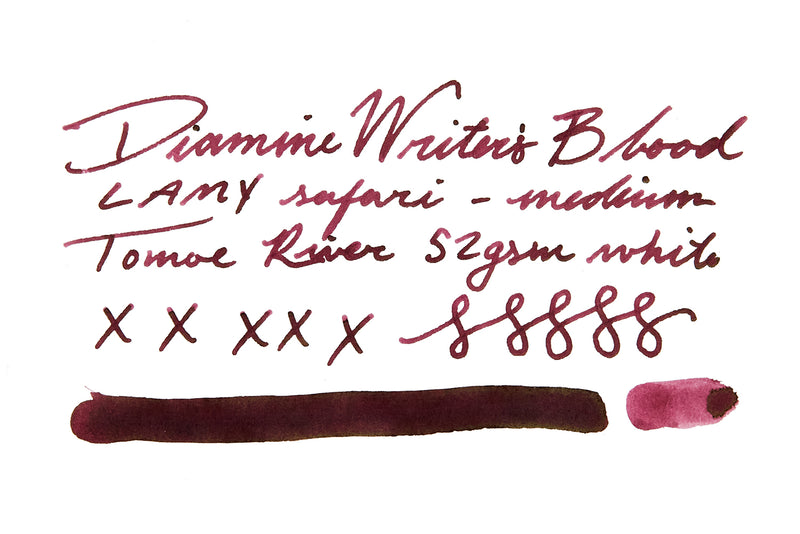 Diamine Writer's Blood
LAMY safari - medium
Tomoe River 52gsm white
X X X X X